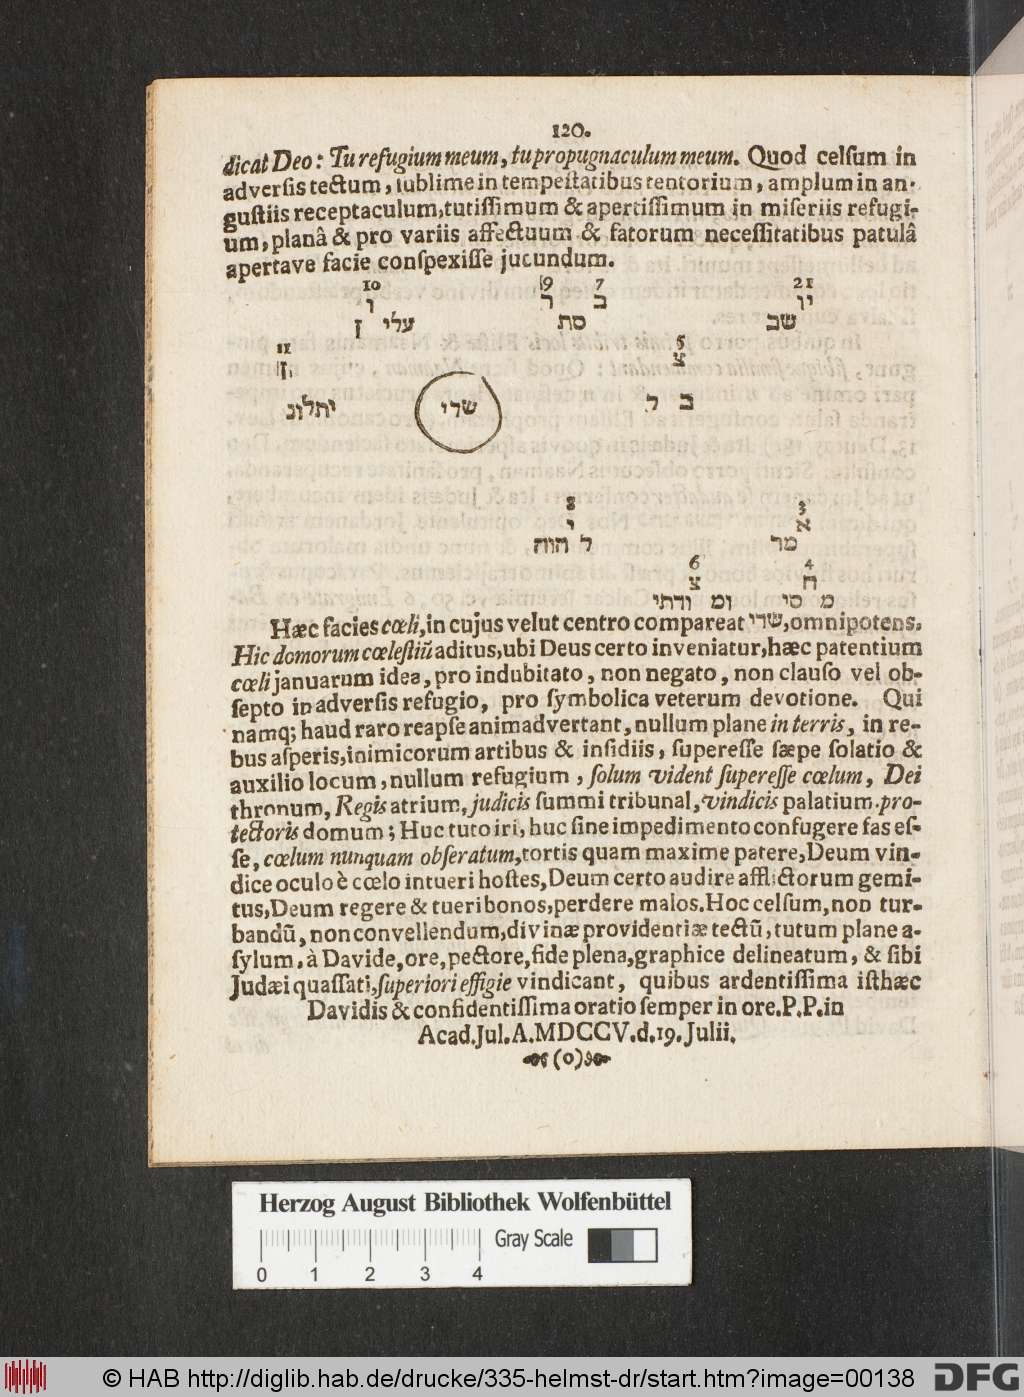 120.
dicat Deo: Tu refugium meum, tu propugnaculum meum. Quod celſum in
adverſis tectum, ſublime in tempeſtatibus tentorium, amplum in an-
guſtiis receptaculum, tutiſſimum & apertiſſimum in miſeriis refugi-
um, planâ & pro variis affectuum & fatorum neceſſitatibus patulâ
apertave facie conſpexiſſe jucundum.
10 19 7 21
ו ר ב יו
עלי ן סת שב
5
צ
11
ון
ב ל
יתלונ שדי
8 3
י א
ל הוה מר
6 4
צ ח
ומ ודתי מ סי
Hæc facies cœli, in cujus velut centro compareat שדי, omnipotens.
Hic domorum cœleſtiũ aditus, ubi Deus certo inveniatur, hæc patentium
cœli januarum idea, pro indubitato, non negato, non clauſo vel ob-
ſepto in adverſis refugio, pro ſymbolica veterum devotione. Qui
namq; haud raro reapſe animadvertant, nullum plane in terris, in re-
bus aſperis, inimicorum artibus & inſidiis, ſupereſſe ſæpe ſolatio &
auxilio locum, nullum refugium, ſolum vident ſupereſſe cœlum, Dei
thronum, Regis atrium, judicis ſummi tribunal, vindicis palatium. pro-
tectoris domum; Huc tuto iri, huc ſine impedimento confugere fas eſ-
ſe, cœlum nunquam obſeratum, tortis quam maxime patere, Deum vin-
dice oculo è cœlo intueri hoſtes, Deum certo audire afflictorum gemi-
tus, Deum regere & tueri bonos, perdere malos. Hoc celſum, non tur-
bandũ, non convellendum, divinæ providentiæ tectũ, tutum plane a-
ſylum, à Davide, ore, pectore, fide plena, graphice delineatum, & ſibi
Judæi quaſſati, ſuperiori effigie vindicant, quibus ardentiſſima iſthæc
Davidis & confidentiſſima oratio ſemper in ore. P. P. in
Acad. Jul. A. MDCCV. d. 19. Julii.
(o)
Herzog August Bibliothek Wolfenbüttel
Gray Scale
0 1 2 3 4
© HAB http://diglib.hab.de/drucke/335-helmst-dr/start.htm?image=00138
DFG